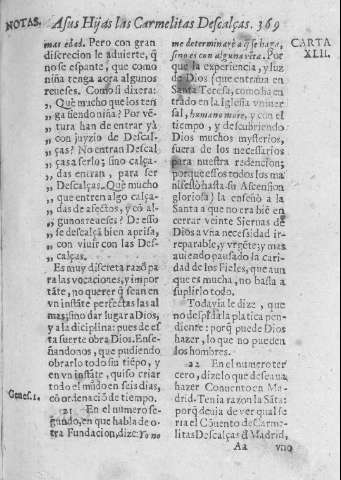 NOTAS.
A sus Hijas las Carmelitas Descalças. 369
mas edad. Pero con gran
discrecion le aduierte, q̃
no se espante, que como
niña tenga aora algunos
reueses. Como si dixera:
,, Què mucho que los ten
,, ga siendo niña? Por vẽ-
,, tura han de entrar yà
,, con juyzio de Descal-
,, ças? No entran Descal
,, ças a serlo; sino calça-
,, das entran, para ser
,, Descalças. Què mucho
,, que entren algo calça-
,, das de afectos, y cõ al-
,, gunos reueses? De esso
,, se descalçã bien aprisa,
,, con viuir con las Des-
,, calças.
Es muy discreta razõ pa
ra las vocaciones, y impor
tãte, no querer q̃ sean en
vn instãte perfectas las al
mas; sino dar lugar a Dios,
y a la diciplina: pues de es
ta suerte obra Dios. Ense-
ñandonos, que pudiendo
obrarlo todo sin tiẽpo, y
en vn instãte, quiso criar
todo el mũdo en seis dias,
Genes. 1.
cõ ordenaciõ de tiempo.
21 En el numero se-
gundo, en que habla de o-
tra Fundacion, dize: Yo no
CARTA
XLII.
me determinarè a q̃ se haga,
sino es con alguna vita. Por
que la experiencia, y luz
de Dios q̃ entraña en
Santa Teresa, como ha en
trado en la Iglesia vniuer
sal, humano more, y con el
tiempo, y descubriendo
Dios muchos mysterios,
fuera de los necessarios
para nuestra redencion;
porque essos todos los ma
nifestò hasta su Ascension
gloriosa) la enseñò a la
Santa a que no era biẽ en
cerrar veinte Sieruas de
Dios a vna necessidad ir-
reparable, y vrgẽte; y mas
auiendo pausado la cari-
dad de los Fieles, que aun
que es mucha, no basta a
suplirlo todo.
Todavia le dize, que
no despida la platica pen-
diente: porq̃ puede Dios
hazer, lo que no pueden
los hombres.
22 En el numero ter
cero, dize lo que deseaua
hazer Conuento en Ma-
drid. Tenia razon la Sãta:
porq̃ deuia de ver qual se
ria el Cõuento de Carme-
litas Descalças d̃ Madrid,
Aa vno